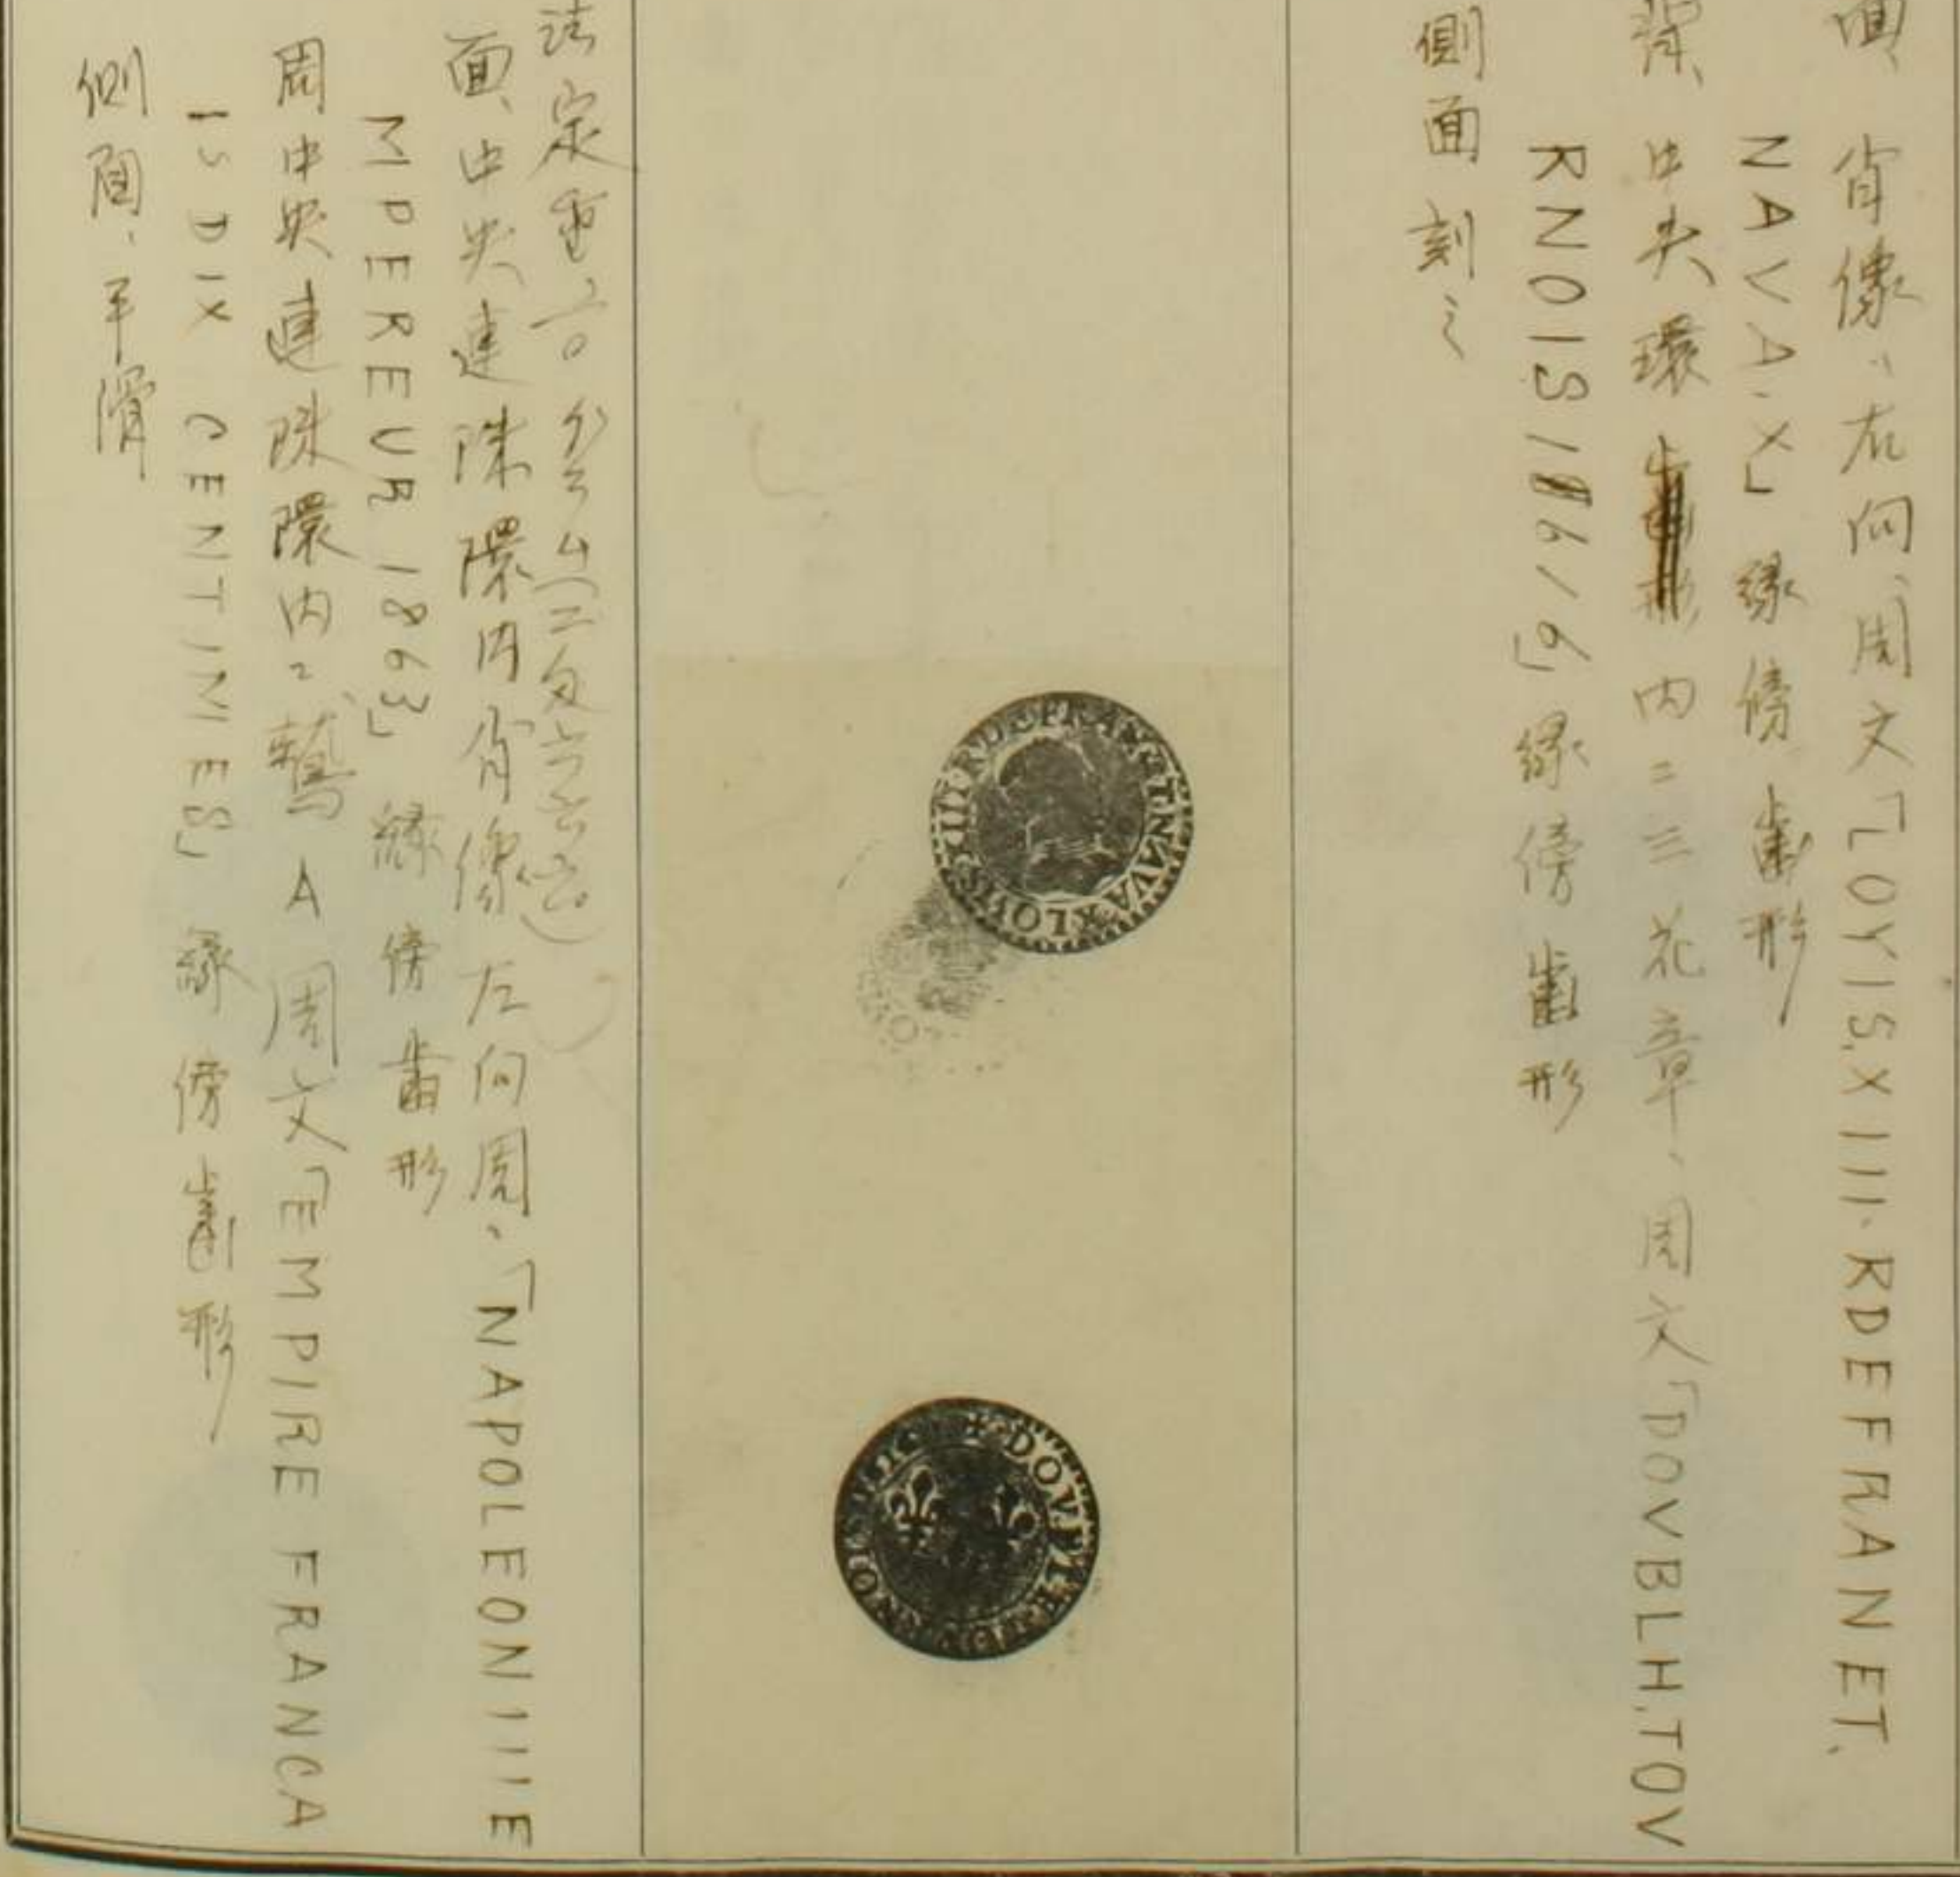 面 肖像、右向、周文「LOYIS.XIII.RDEFRANET.
NAVA.X」縁傍歯形
背 中央環内ニ三花章、周文「DOVBLH.TOV
RNOIS1616」縁傍歯形
側面刻之
XIII·R·DE·FRAN·ET·NAVA·X LOYS
DOVBLE
法定重
面、中央連珠環内肖像左向周、「NAPOLEONIIIE
MPEREUR 1863」縁傍歯形
周中央連珠環内ニ鷲 A 周文「EMPIRE FRANCA
IS DIX CENTIMES」縁傍歯形
側面、平滑